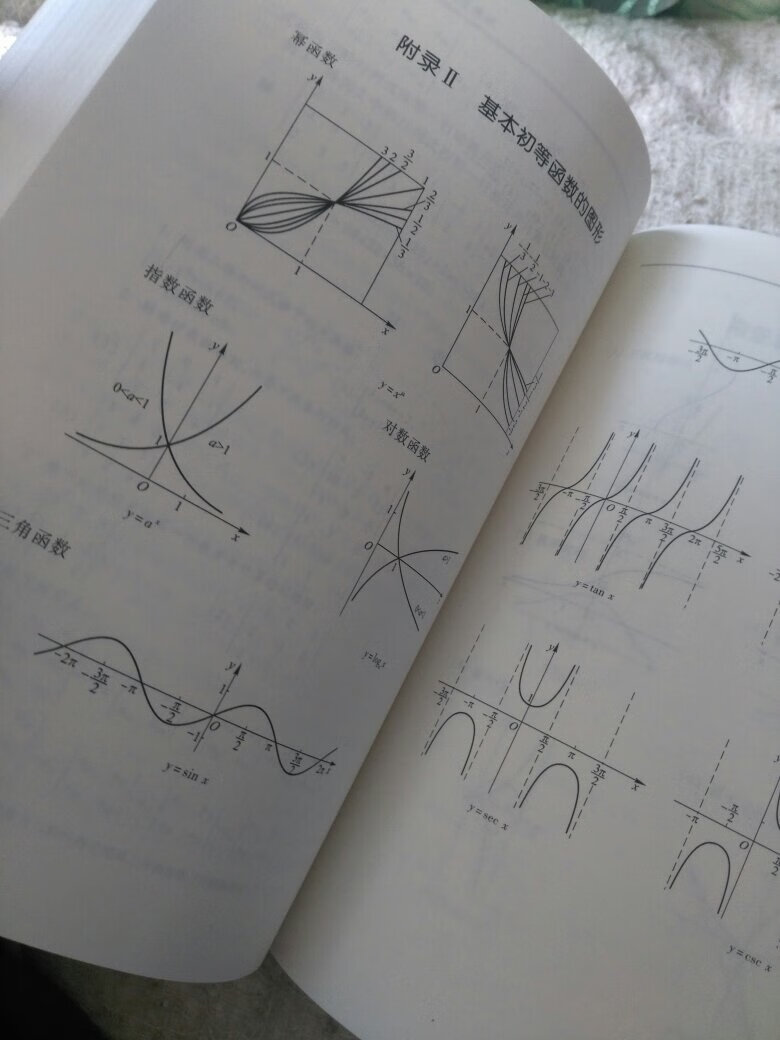 附录Ⅱ 基本初等函数的图形
幂函数
y
1
O
1
x
3 2 3/2 1
2/3
1/2
1/3
y
1
O
1
y=xᵃ
指数函数
y
0<a<1
a>1
1
O
1
x
y=aˣ
对数函数
y
1
O
1
三角函数
y
1
-2π -3π/2 -π -π/2 O π/2 π 3π/2 2π
-1
y=sin x
-3π/2 -π -π/2
y
-3π/2 -π -π/2 O π/2 π 3π/2 2π 5π/2 x
y=tan x
y
-3π/2 -π -π/2 O π/2 π 3π/2 x
y=sec x
-π -π/2 O π/2
y=csc x